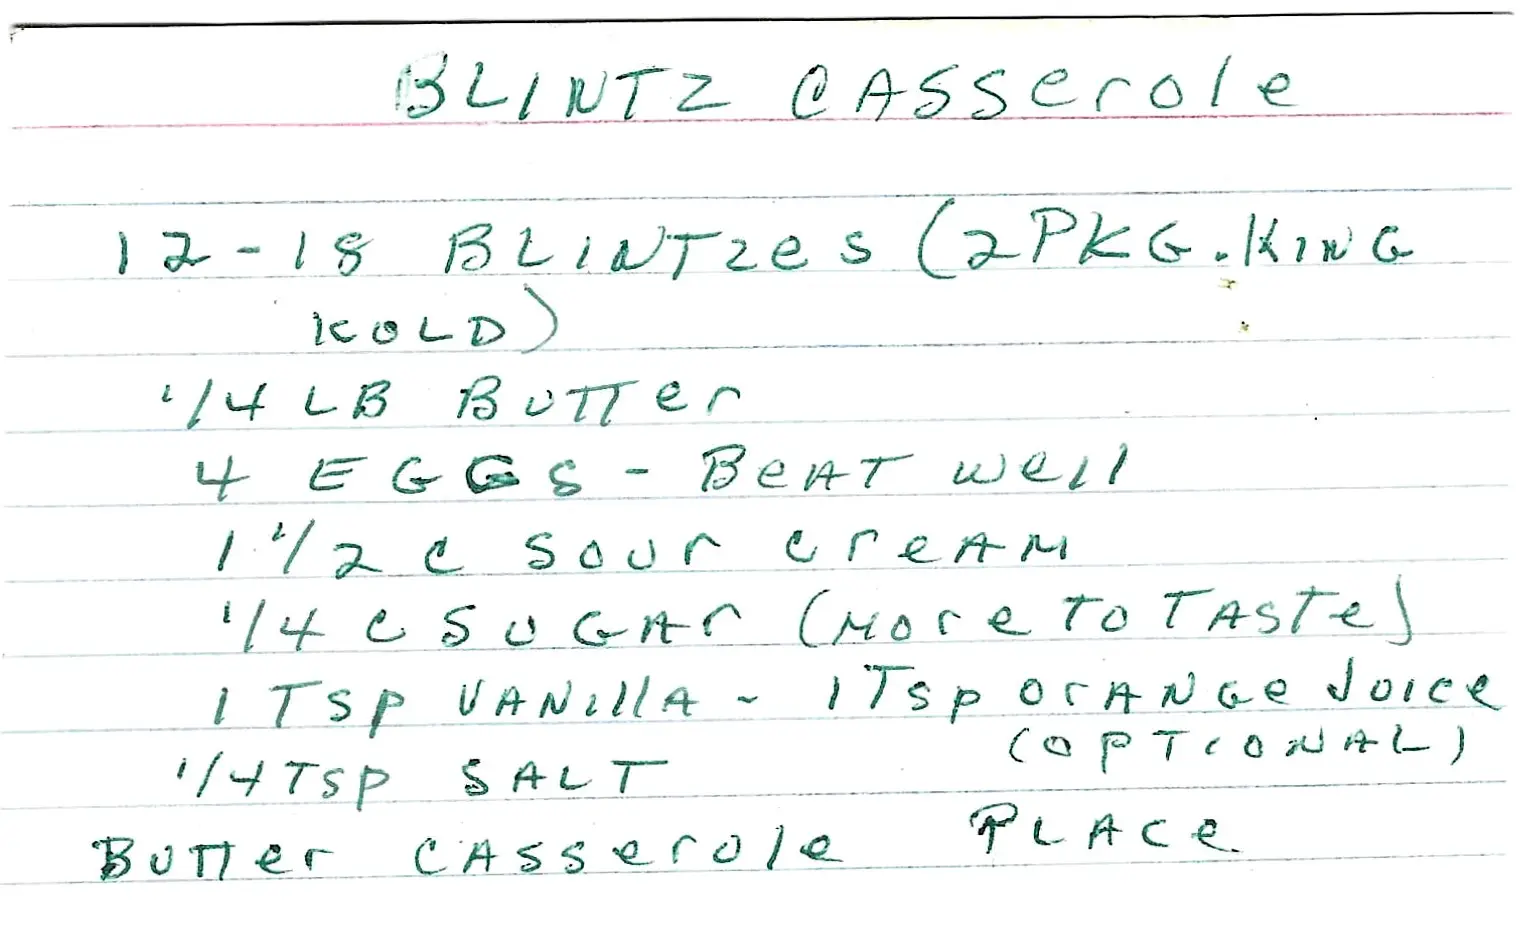 BLINTZ CASSerole
12-18 BLINTZeS (2 PKG. KING
KOLD)
1/4 LB BUTTer
4 EGGS - BeAT well
1 1/2 c Sour creAM
1/4 c SUGAr (More TO TASTe)
1 TSp VANillA - 1 TSp OrANGe JUICe
(OPTIONAL)
1/4 TSp SALT
BUTTer CASSerole PLACe